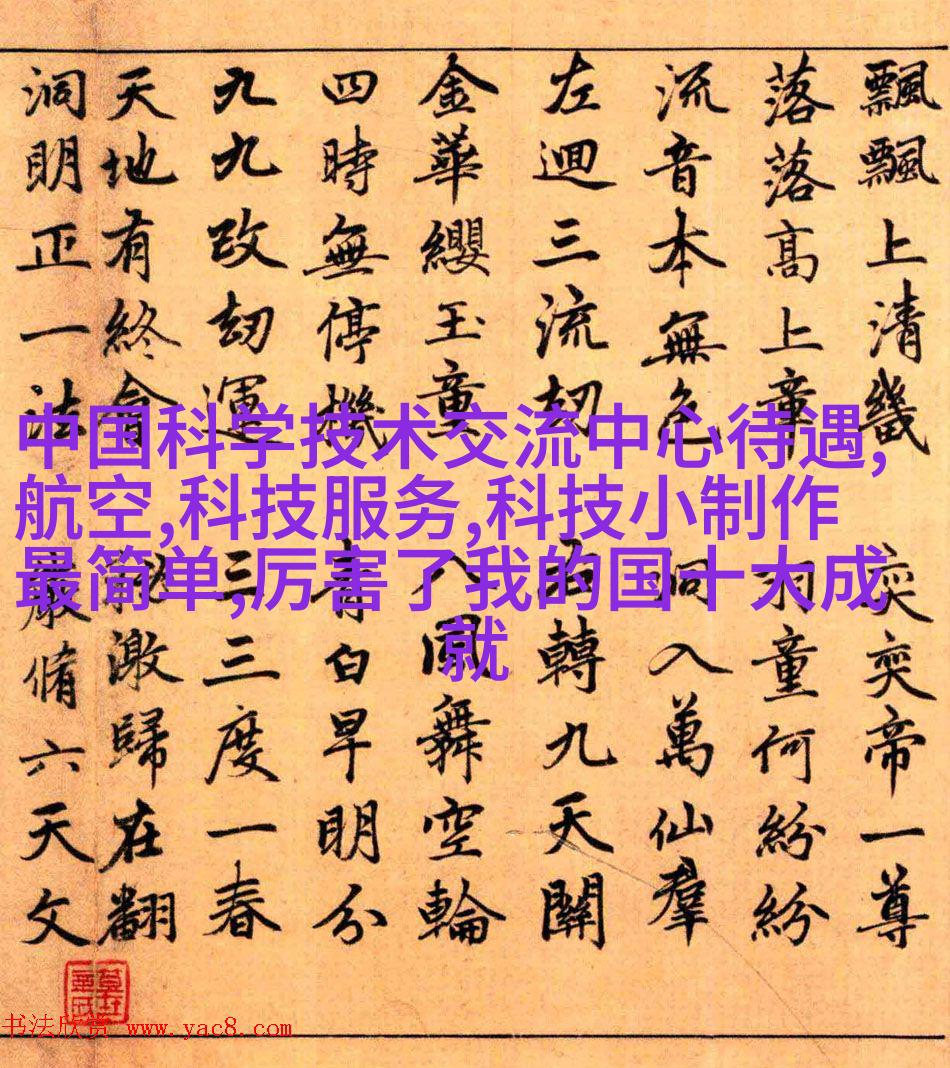 飄飄上清畿奕奕帝一尊
落落高上章羽童何紛紛
流音本無色洞入萬仙羣
左迴三流劫轉九天關
金華纓玉童八風舞空輪
四時無停機青白早明分
九九改劫運三三度一春
天地有終會激歸在翻
洞明正一法嚴脩六天文
中国科学技术交流中心待遇,
航空,科技服务,科技小制作
最简单,厉害了我的国十大成
就
书法欣赏 www.yac8.com